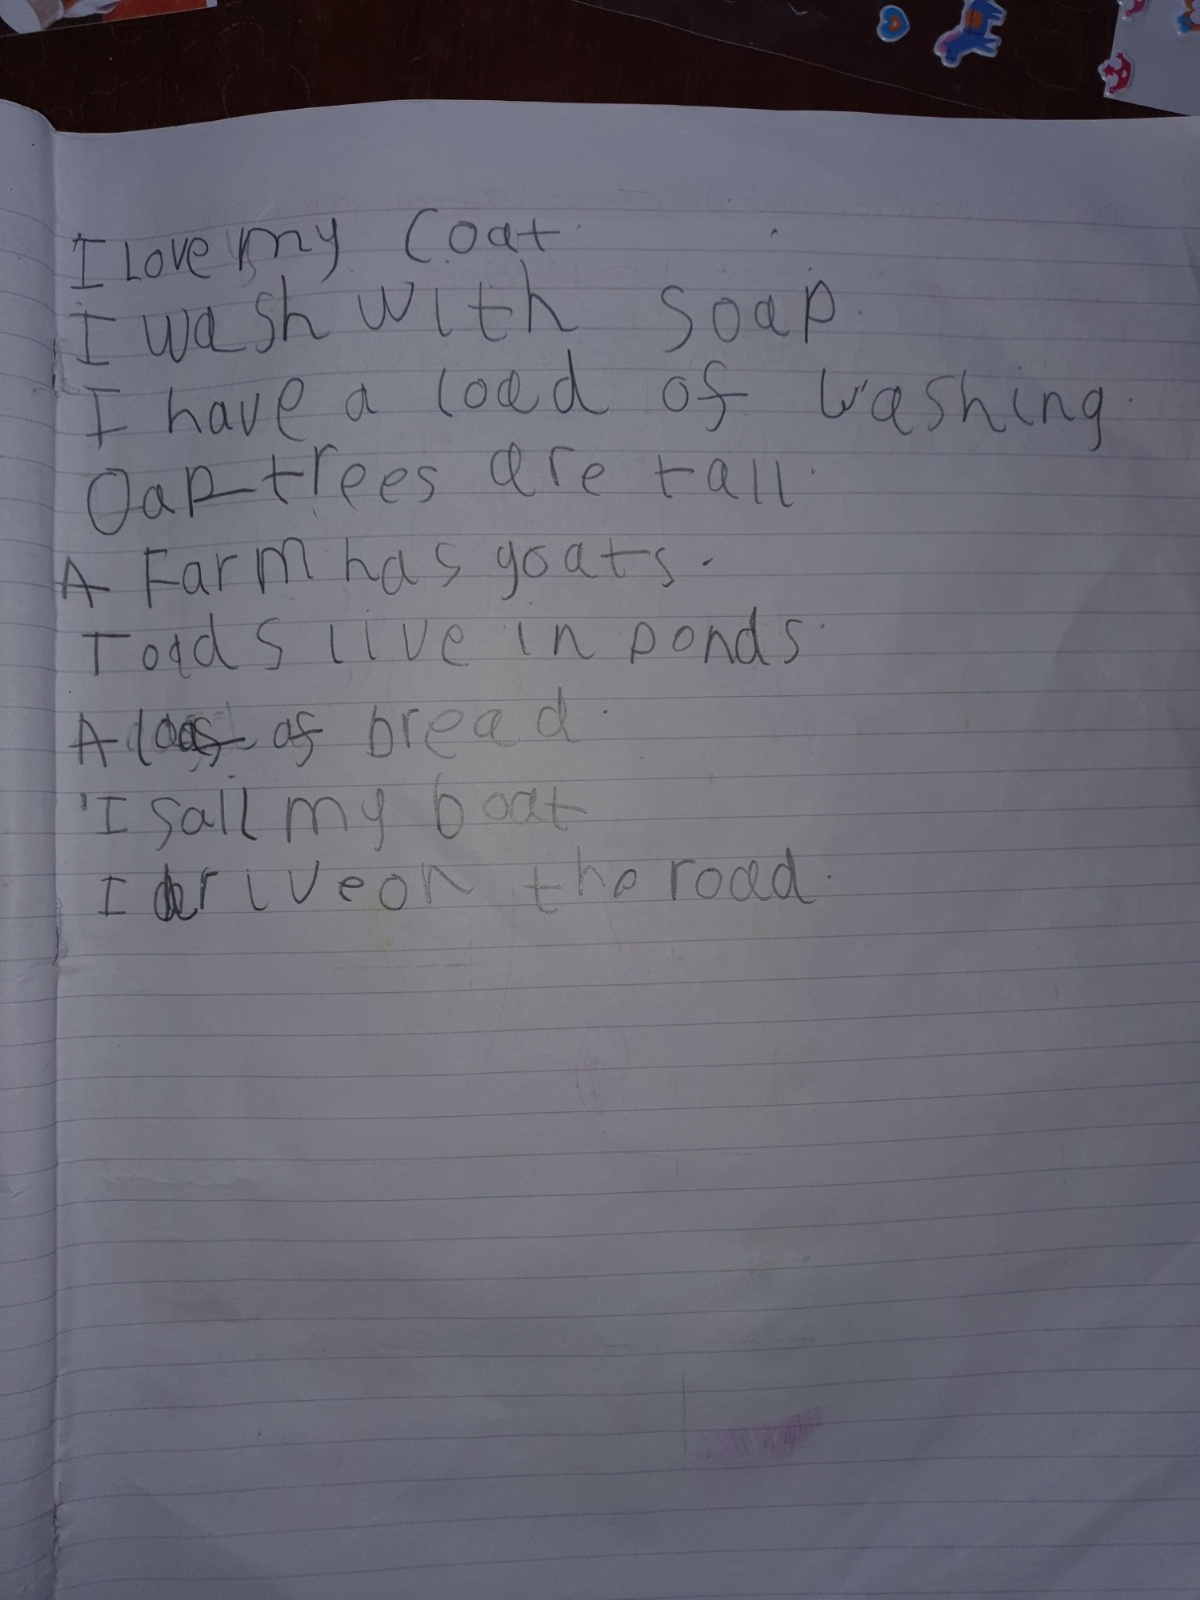 I Love my Coat.
I wash with soap.
I have a load of washing.
Oap trees are tall.
A Farm has goats.
Toads live in ponds.
A of bread.
I sail my boat
I drive on the road.